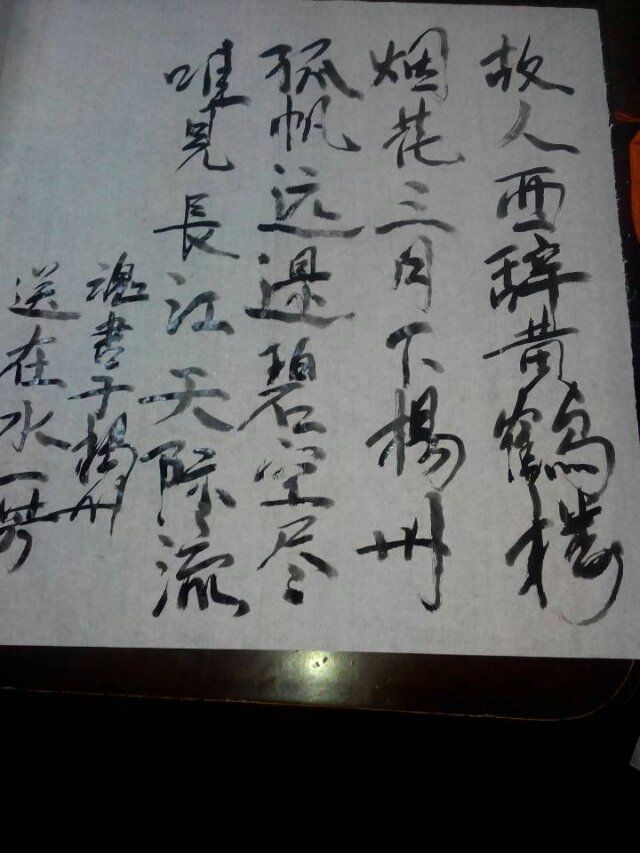 故人西辞黄鹤楼
烟花三月下楊州
孤帆远邉碧空尽
唯見長江天际流
魂書于楊州
送在水一方